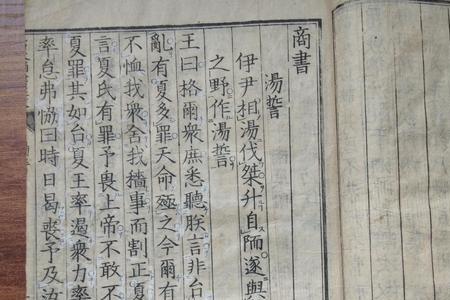 商書
湯誓
伊尹相湯伐桀升自陑遂與
之野作湯誓
王曰格爾衆庶悉聽朕言非台
亂有夏多罪天命殛之今爾有
不恤我衆舍我穡事而割正夏
言夏氏有罪予畏上帝不敢不
夏罪其如台夏王率遏衆力率
率怠弗協曰時日曷喪予及汝